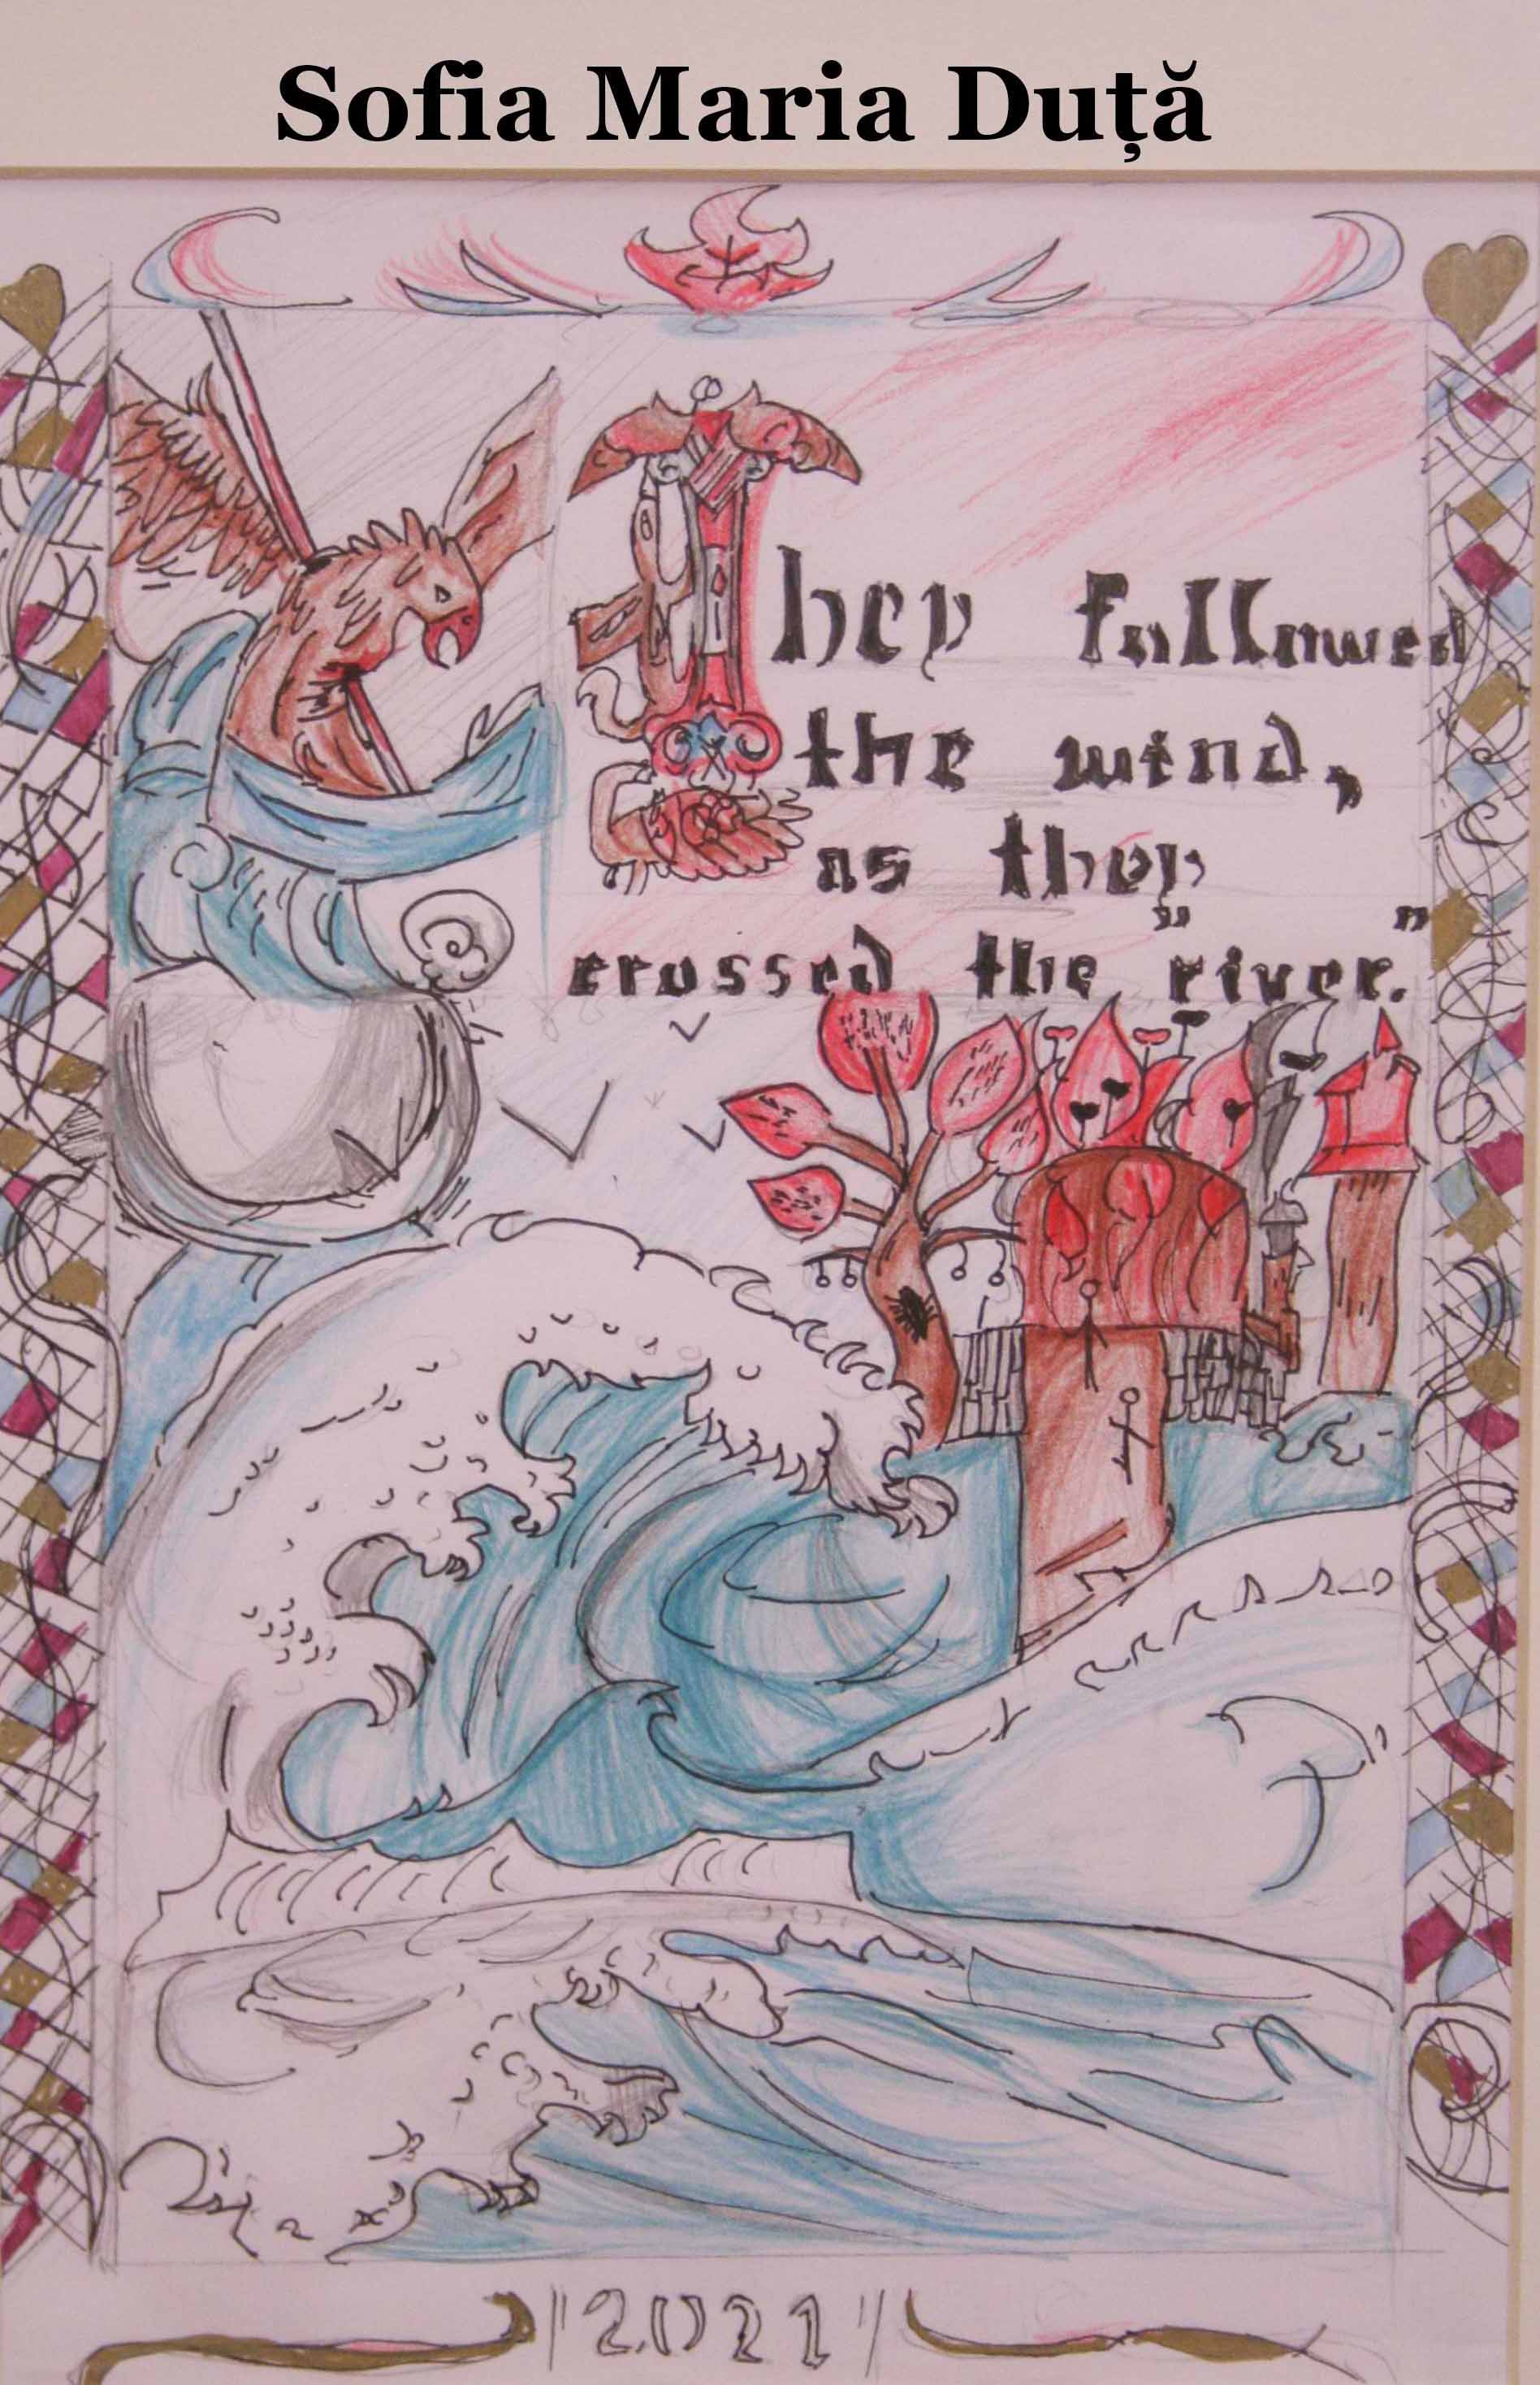 Sofia Maria Duță
They followed
the wind,
as they
crossed the "river."
2021